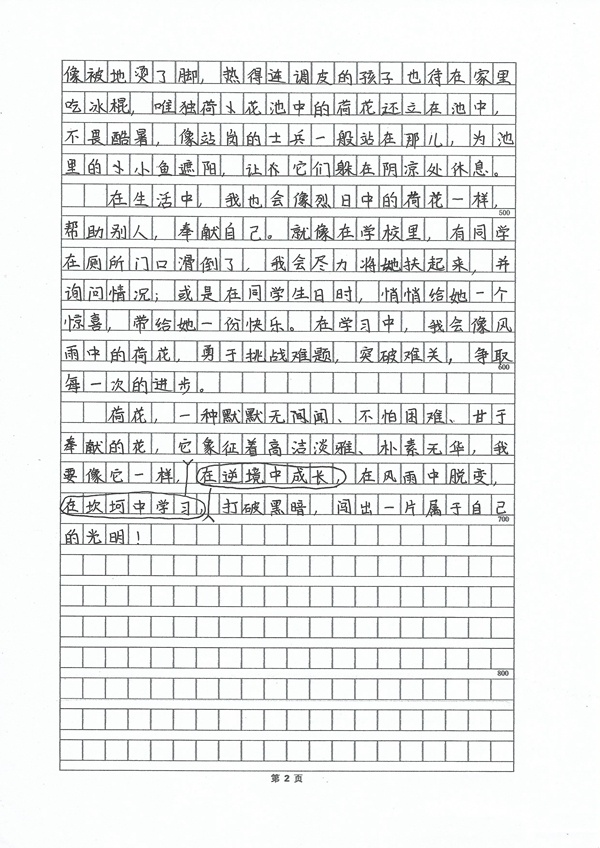 像被地烫了脚，热得连调皮的孩子也待在家里
吃冰棍，唯独荷花池中的荷花还立在池中，
不畏酷暑，像站岗的士兵一般站在那儿，为池
里的小小鱼遮阳，让它们躲在阴凉处休息。
在生活中，我也会像烈日中的荷花一样，
500
帮助别人，奉献自己。就像在学校里，有同学
在厕所门口滑倒了，我会尽力将她扶起来，并
询问情况；或是在同学生日时，悄悄给她一个
惊喜，带给她一份快乐。在学习中，我会像风
雨中的荷花，勇于挑战难题，突破难关，争取
600
每一次的进步。
荷花，一种默默无闻、不怕困难、甘于
奉献的花，它象征着高洁淡雅、朴素无华，我
要像它一样，在逆境中成长，在风雨中脱变，
在坎坷中学习，打破黑暗，闯出一片属于自己
700
的光明！
800
第 2 页